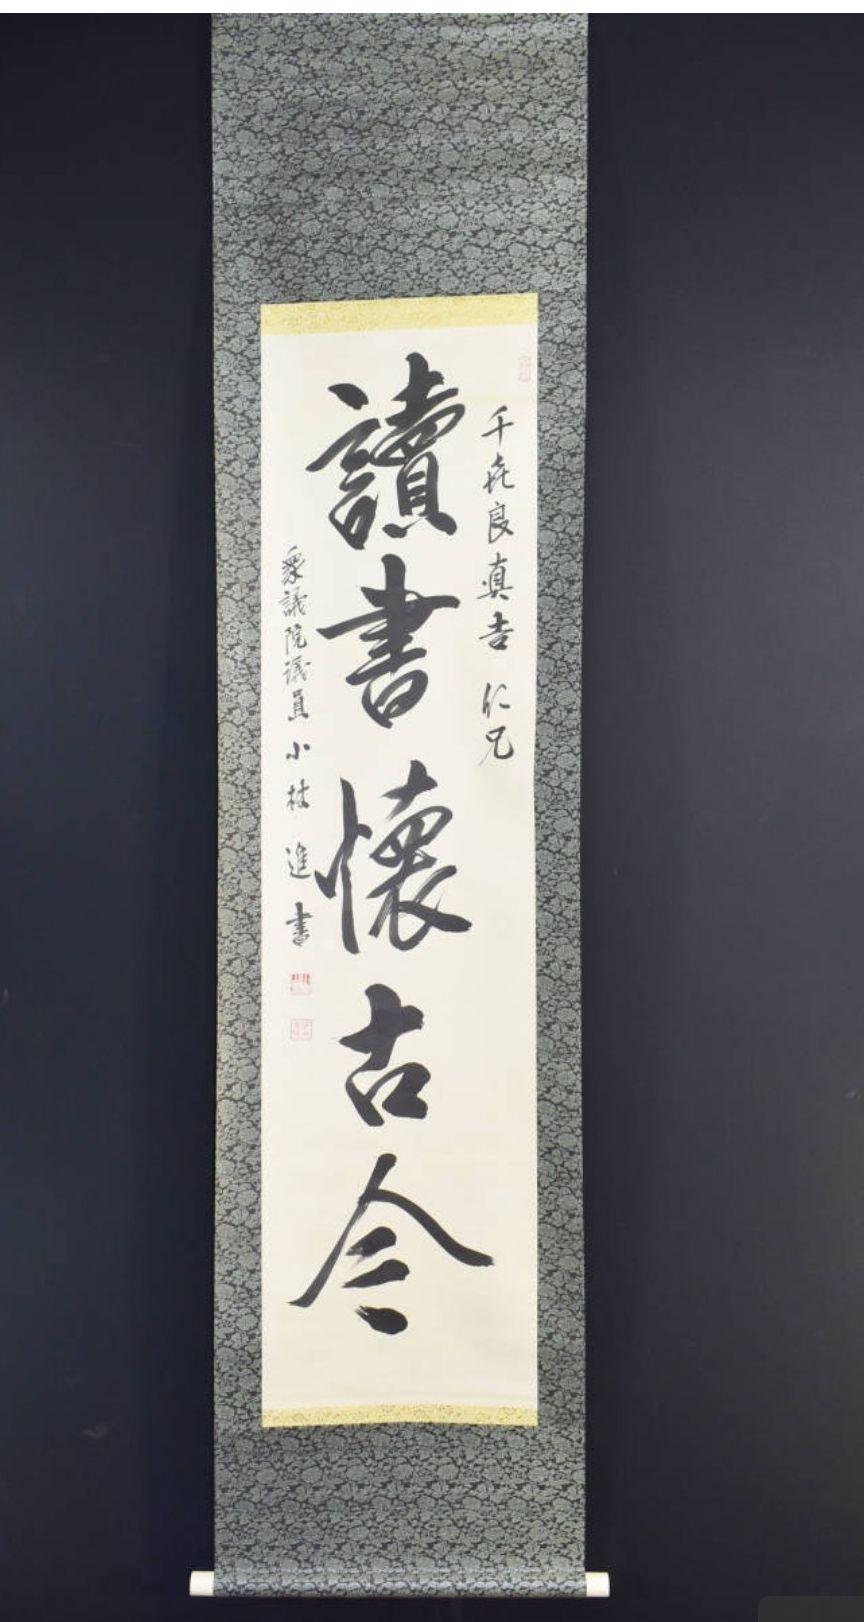 千㐂良真吉 仁兄
讀書懷古今
衆議院議員 小林 進 書